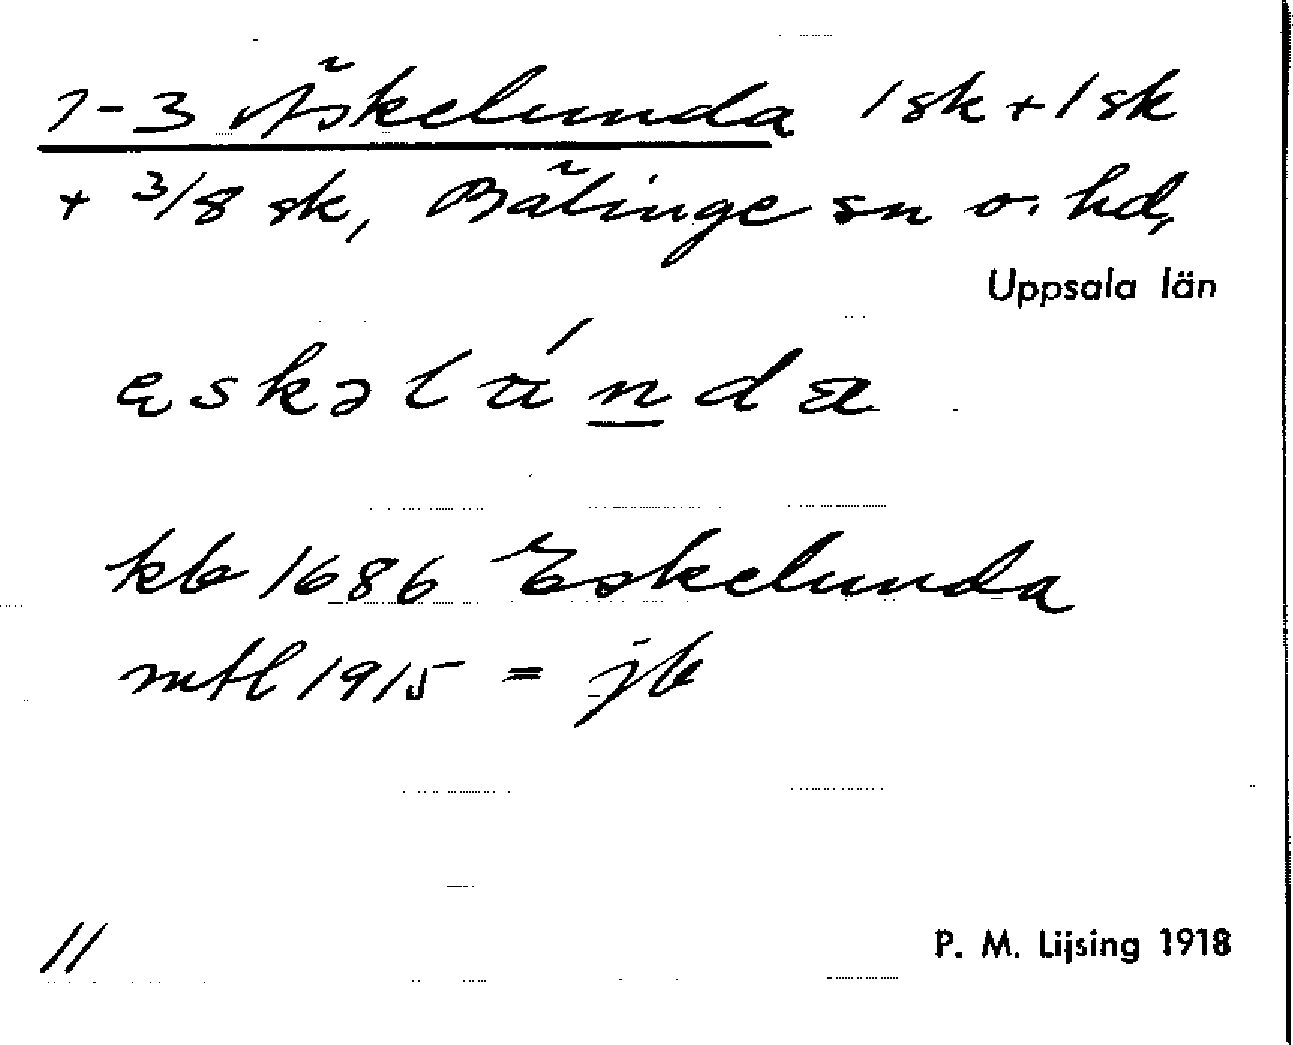 1-3 Äskelunda 1 sk + 1 sk
+ 3/8 sk, Bälinge sn o. hd,
Uppsala län
kb 1686 Eskelunda
mtl 1915 = jb
11
P. M. Lijsing 1918